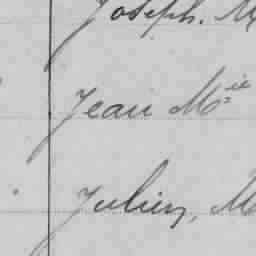 Joseph. M
Jean M.ie
Julien, M